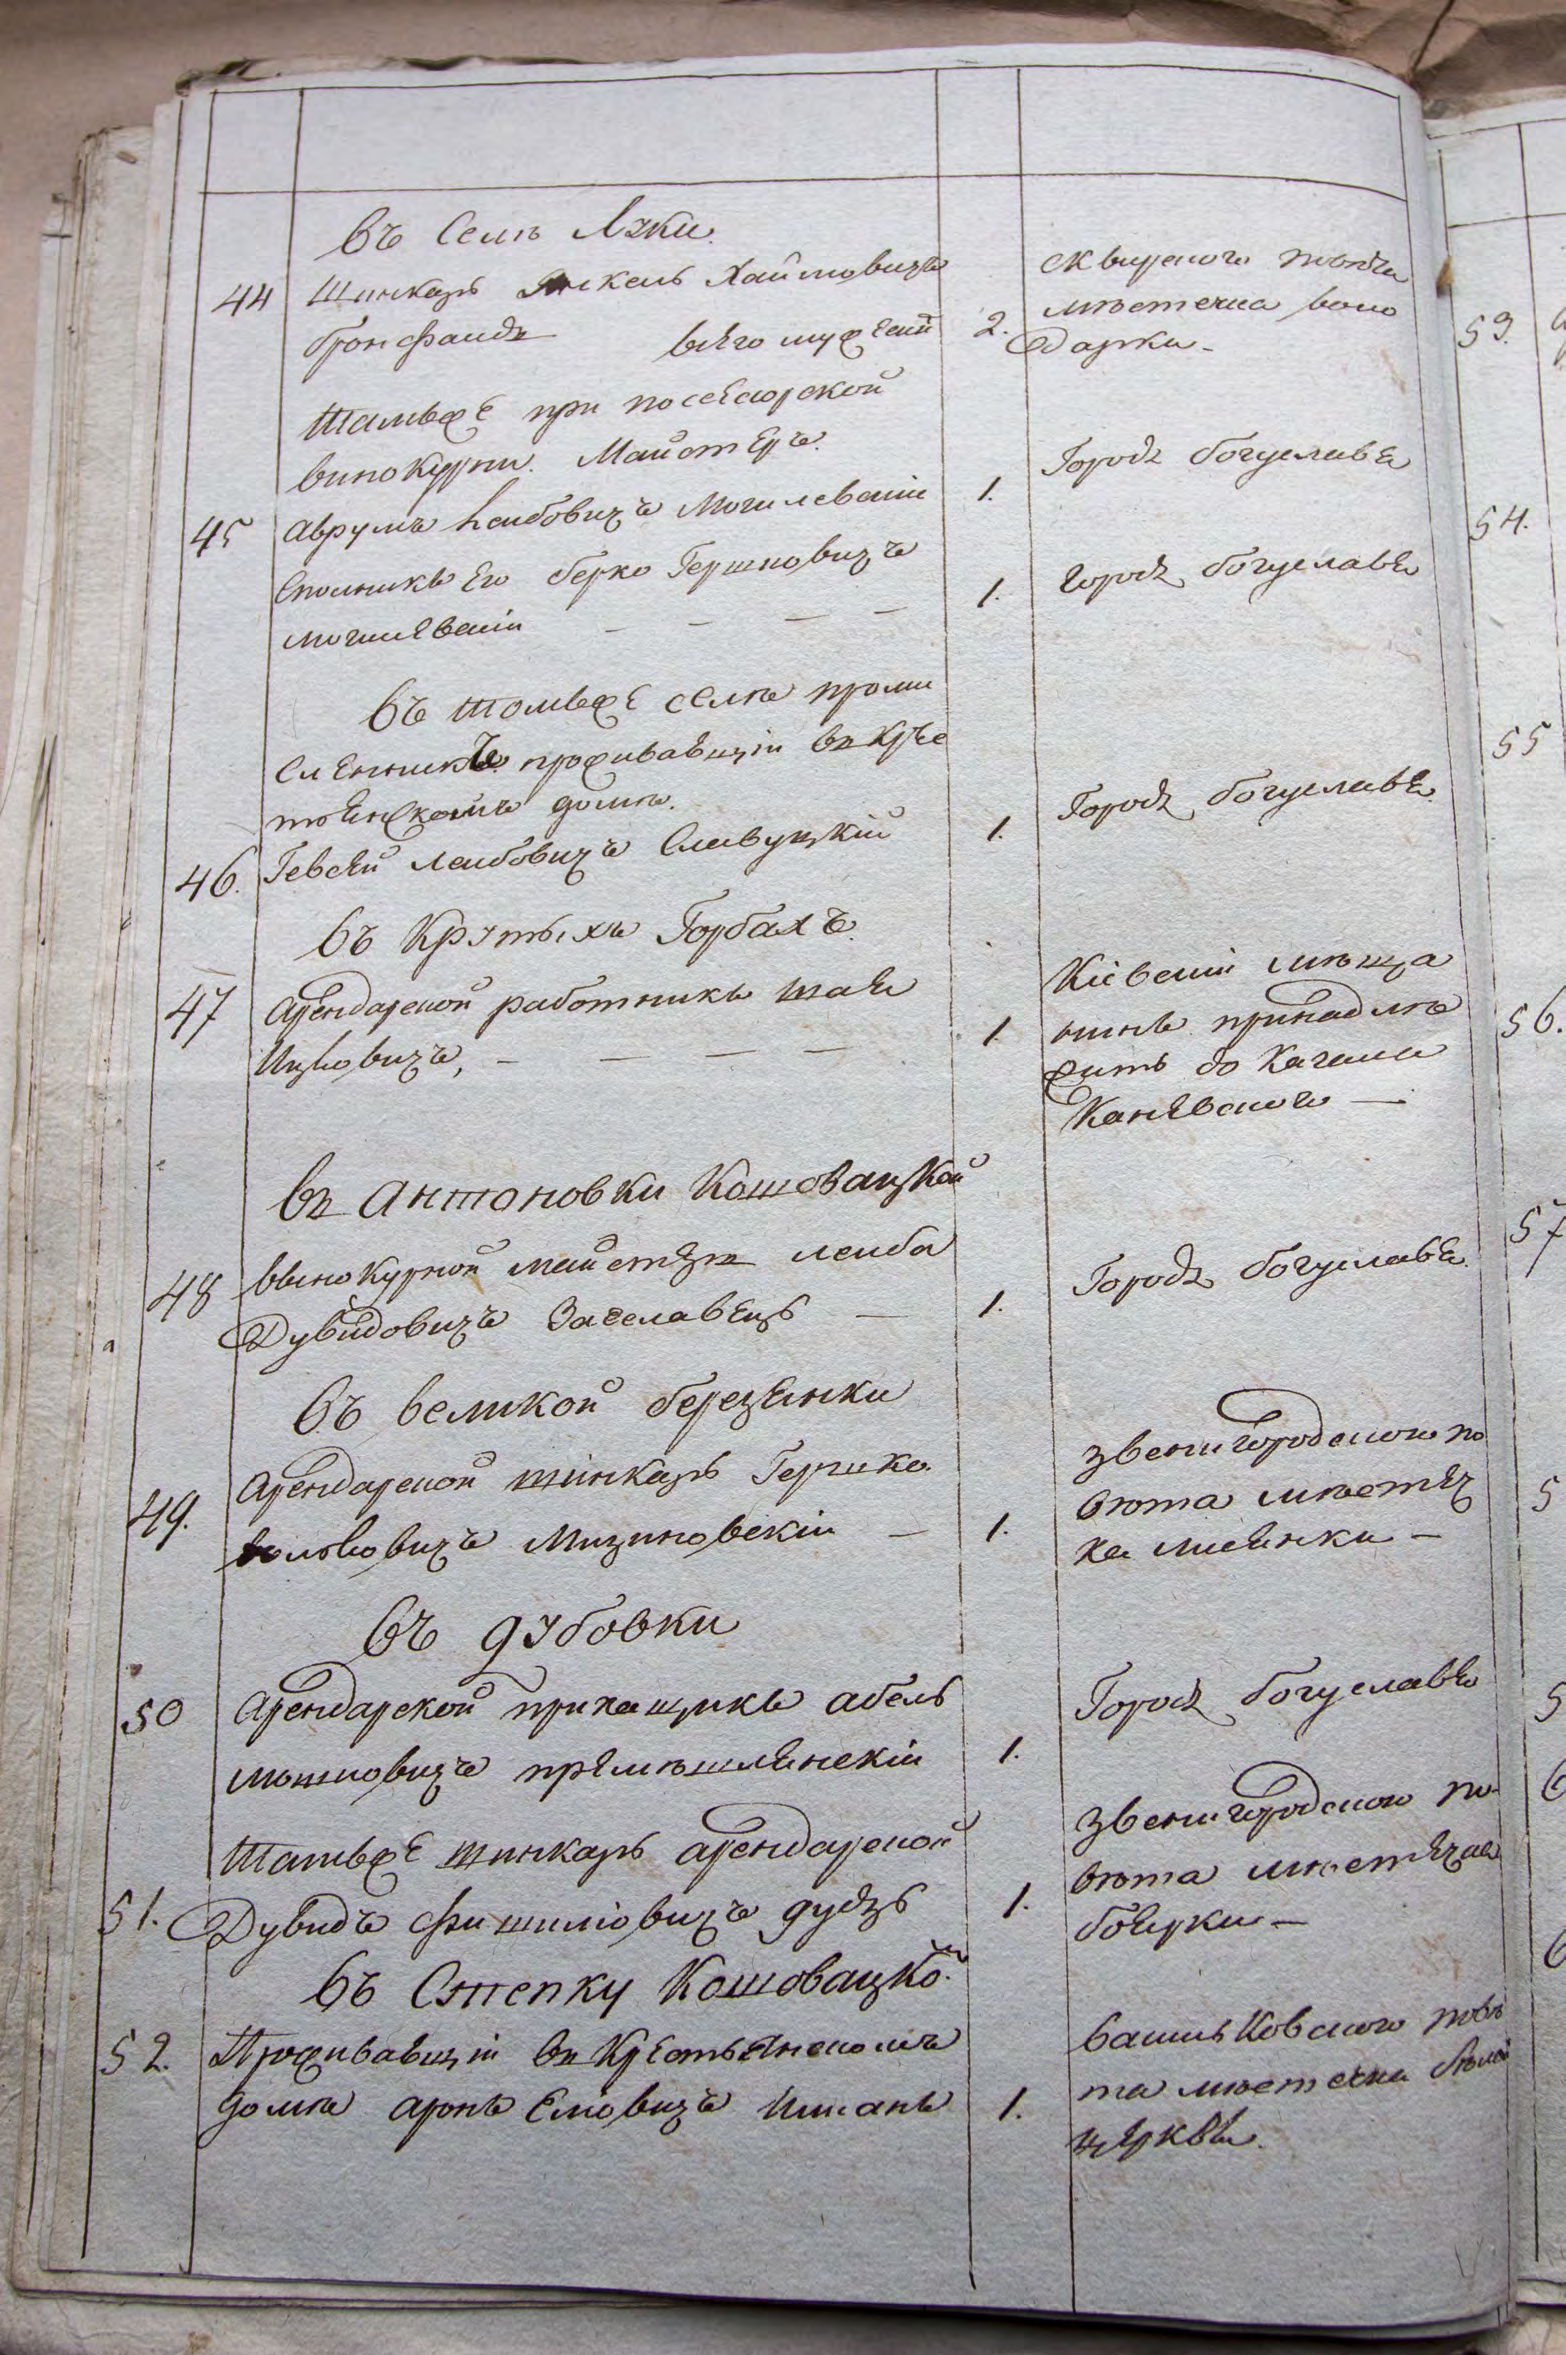 Въ Селѣ Луки.
44 Шинкарь Янкель Хаймовичъ
Бронфандъ всѣго мужеский 2.
Сквирского повѣта
мѣстечка воло
дарки –
Тамъже при посесорской
винокурни. Майстеръ.
45 Аврумъ Леибовичъ Могилевский 1. Городъ Богуславъ
Спольникъ Его Берко Гершковичъ 1. Городъ Богуславъ
Могилевский – – – –
Въ томъже Селѣ промы
сленникъ проживавщій въ кръс
тьянскомъ домѣ.
46. Гевсей Леибовичъ Славуцкій 1. Городъ Богуславъ.
Въ Крутыхъ Горбахъ.
47 Арендарской работникъ Шая 1.
Ицковичъ, – – – –
Кіевский мѣща
нинъ принадлѣ
житъ до Кагала
Каневского –
въ Антоновки Кошовацкой
48 винокурной майстеръ Леиба
Дувидовичъ Заславецъ – 1. Городъ Богуславъ.
Въ великой березянки
49. Арендарской шинкарь Гершко
Вольковичъ Мизиновскій – 1.
Звенигородского по
вѣта мѣстеч
ка лисянки –
Въ дубовки
50 Арендарской прикащикъ Абель
Мошковичъ премышлянскій 1. Городъ Богуславъ
Тамъже шинкарь арендарской
51. Дувидъ Фишиліовичъ дудзь 1.
Звенигородского по-
вѣта мѣстечка
боярки –
Въ Степку Кошовацкой
52. Проживавщій въ Крестьянскомъ
домѣ Аронъ Еліовичъ 1.
Васильковского повѣ
та мѣстечка бѣлой
церкви.
53.
54.
55
56.
57
5
5
6
6